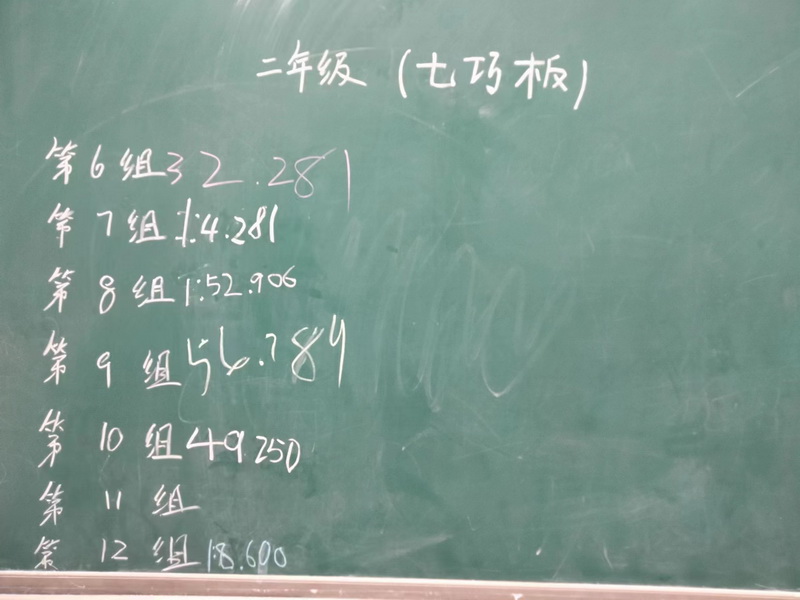 二年级（七巧板）
第6组32.281
第7组1:4.281
第8组1:52.906
第9组56.789
第10组49.250
第11组
第12组1:8.600